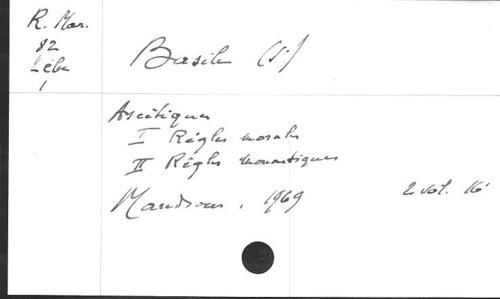 R. Mor.
82
Lèbe
1
Basile (S.)
Ascétiques
I Règles morales
II Règles monastiques
Maredsous, 1969 2 vol. 16°